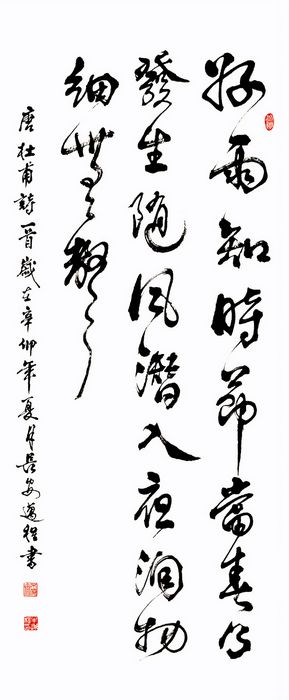 好雨知時節當春乃
發生隨風潛入夜潤物
細無聲
唐杜甫詩一首歲在辛卯年夏月長安邁程書